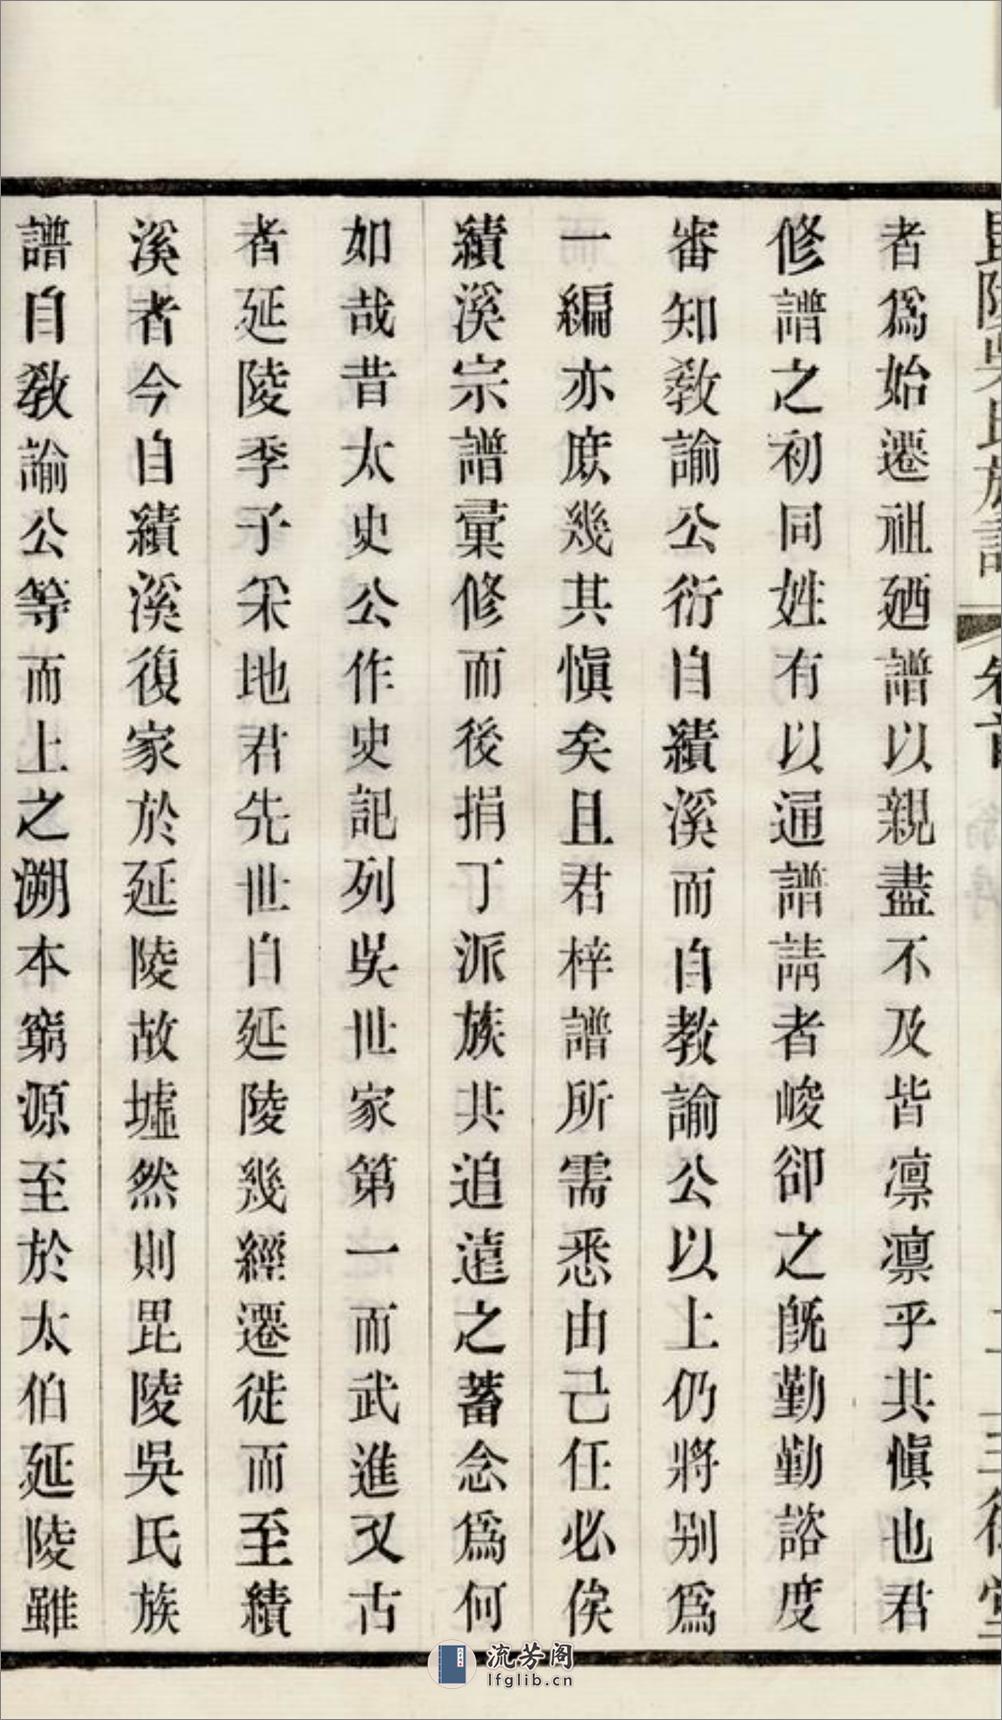 毘陵吳氏族譜 卷首 二 三德堂
者爲始遷祖廼譜以親盡不及皆凛凛乎其愼也君
修譜之初同姓有以通譜請者峻卻之旣勤勤諮度
審知敎諭公衍自績溪而自教諭公以上仍將别爲
一編亦庶幾其愼矣且君梓譜所需悉由己任必俟
績溪宗譜彙修而後捐丁派族其追遠之蓄念爲何
如哉昔太史公作史記列吳世家第一而武進又古
者延陵季子采地君先世自延陵幾經遷徙而至績
溪者今自績溪復家於延陵故墟然則毘陵吳氏族
譜自敎諭公等而上之溯本窮源至於太伯延陵雖
流芳阁
lfglib.cn